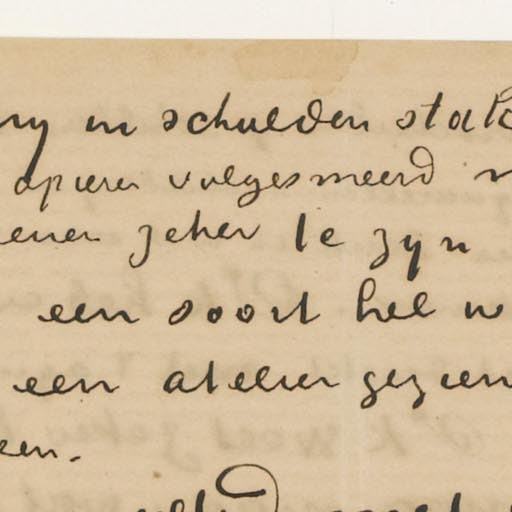 ny in schulden stak
papieren volgesmeerd
zeker te zyn
een soort hel w
een atelier gezien
een.